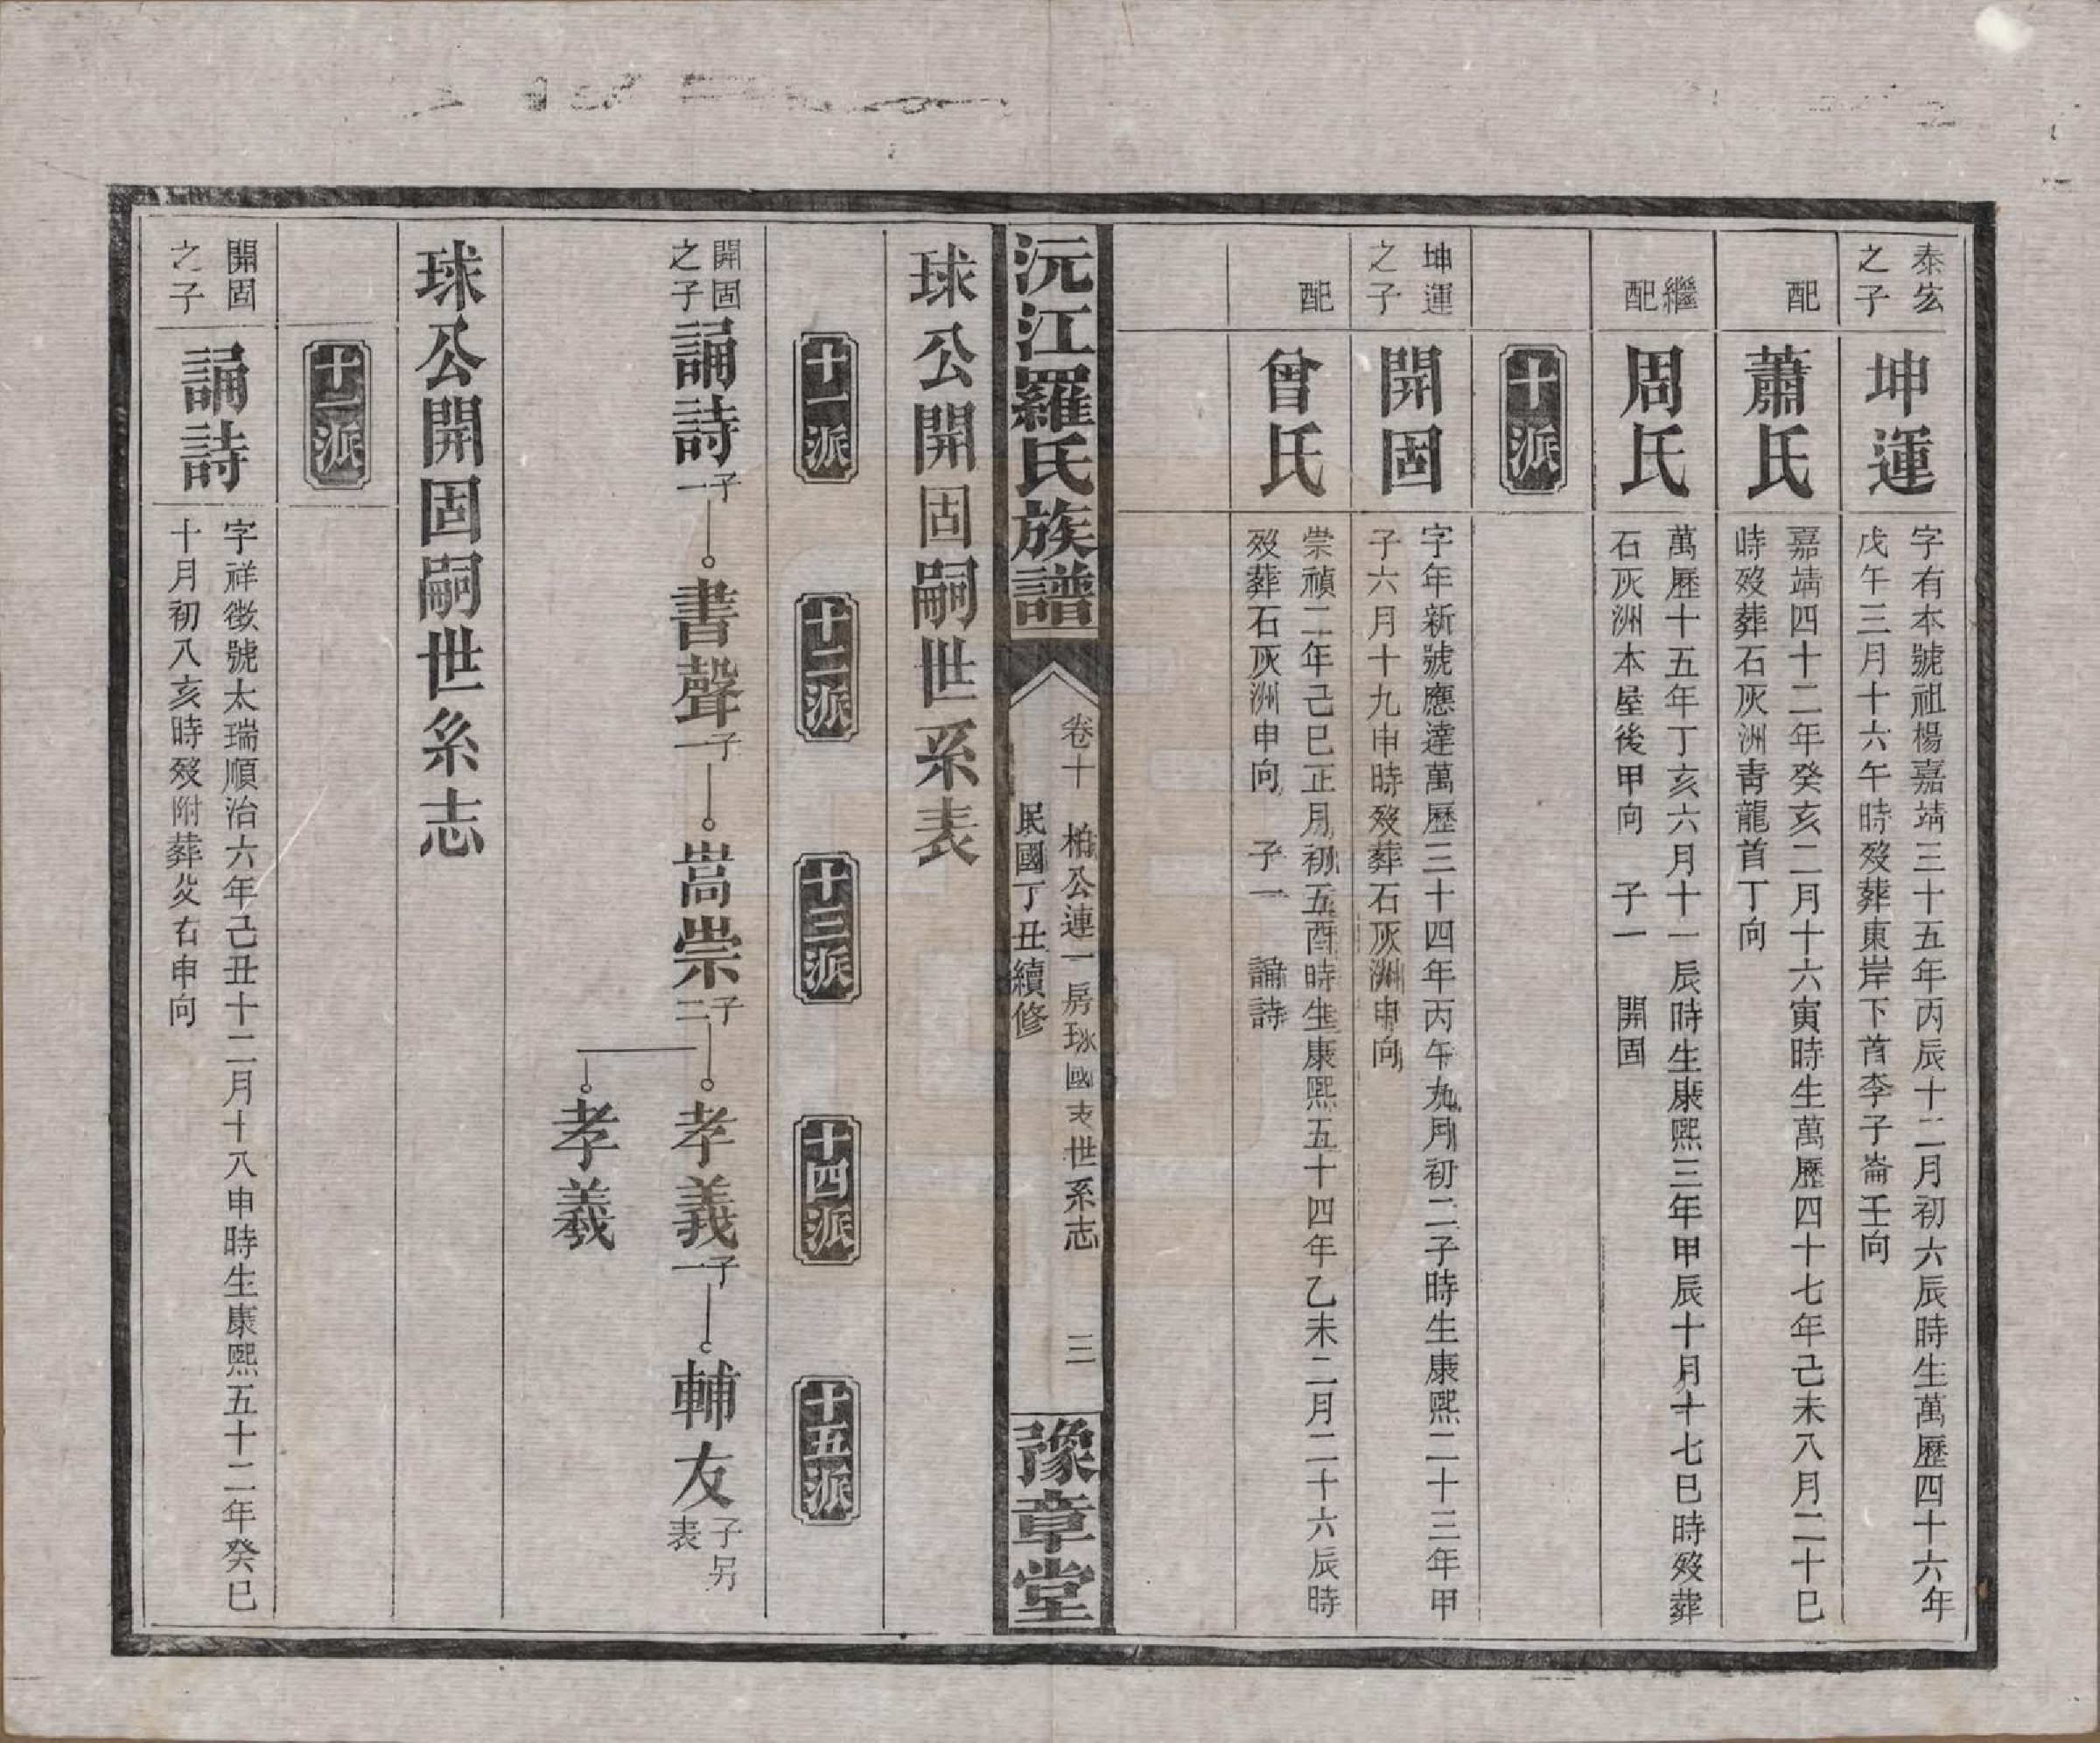 泰宏
之子
坤運
字有本號祖楊嘉靖三十五年丙辰十二月初六辰時生萬歷四十六年
戊午三月十六午時歿葬東岸下首李子崙壬向
配
蕭氏
嘉靖四十二年癸亥二月十六寅時生萬歷四十七年己未八月二十巳
時歿葬石灰洲青龍首丁向
繼
配
周氏
萬歷十五年丁亥六月十一辰時生康熙三年甲辰十月十七巳時歿葬
石灰洲本屋後甲向　子一　開固
十派
坤運
之子
開固
字年新號應達萬歷三十四年丙午九月初二子時生康熙二十三年甲
子六月十九申時歿葬石灰洲申向
配
曾氏
崇禎二年己巳正月初五酉時生康熙五十四年乙未二月二十六辰時
歿葬石灰洲申向　子一　誦詩
沅江羅氏族譜
卷十　柏公連一房球國支世系志　三
民國丁丑續修
豫章堂
球公開固嗣世系表
十一派　十二派　十三派　十四派　十五派
開固
之子
誦詩 子一 書聲 子一 嵩崇 子二 孝義 子一 輔友 子另表
孝羲
球公開固嗣世系志
十一派
開固
之子
誦詩
字祥徵號太瑞順治六年己丑十二月十八申時生康熙五十二年癸巳
十月初八亥時歿附葬父右申向